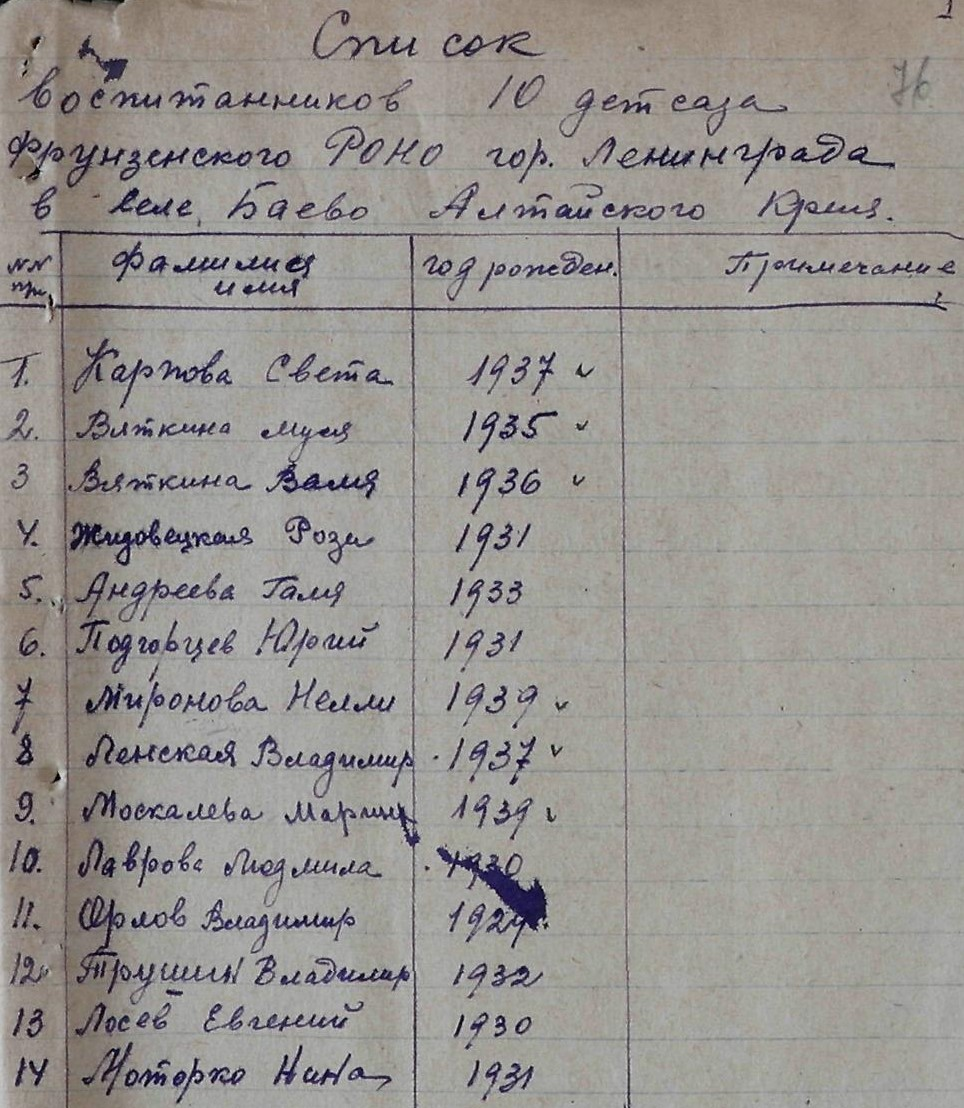 1
76
Список
воспитанников 10 детсада
Фрунзенского РОНО гор. Ленинграда
в селе Баево Алтайского Края.
NN пр. Фамилия имя год рожден. Примечание
1. Карпова Света 1937 ✓
2. Вяткина Муся 1935 ✓
3 Вяткина Валя 1936 ✓
4. Жидовецкая Роза 1931
5. Андреева Галя 1933
6. Подгорцев Юрий 1931
7 Миронова Нелли 1939 ✓
8 Ленская Владимир 1937 ✓
9. Москалева Марина 1939 ✓
10. Лаврова Людмила 1930
11. Орлов Владимир
12 Трушин Владимир 1932
13 Лосев Евгений 1930
14 Моторко Нина 1931